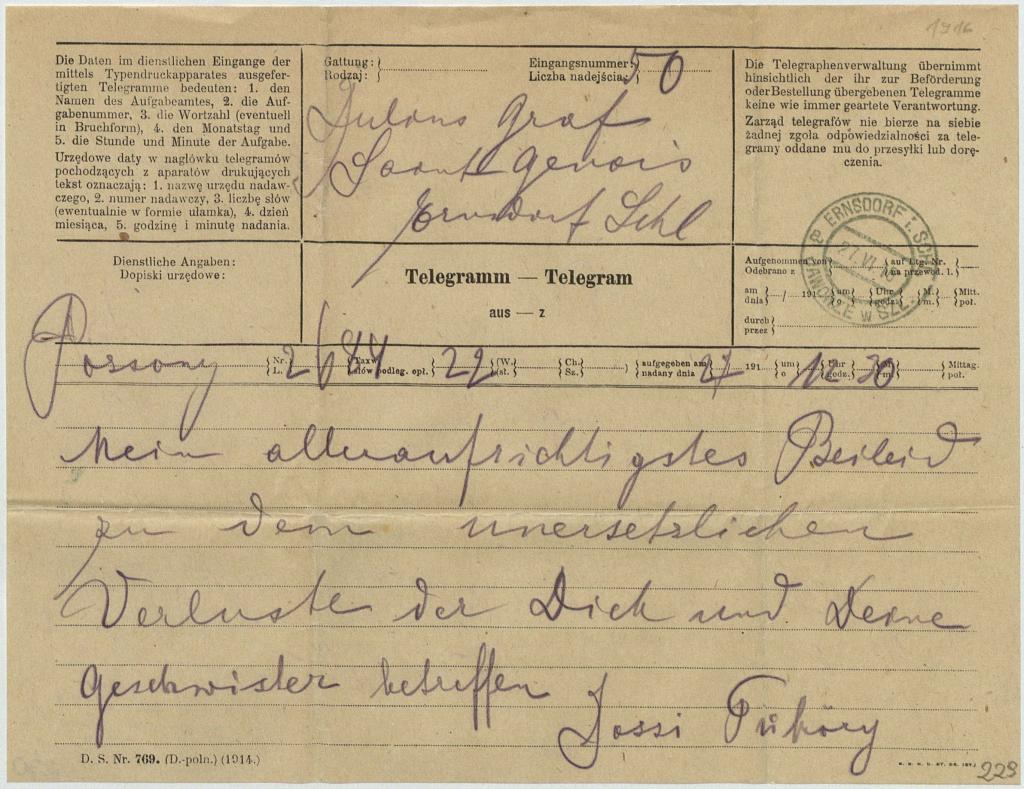 1916
Die Daten im dienstlichen Eingange der
mittels Typendruckapparates ausgefer-
tigten Telegramme bedeuten: 1. den
Namen des Aufgabeamtes, 2. die Auf-
gabenummer, 3. die Wortzahl (eventuell
in Bruchform), 4. den Monatstag und
5. die Stunde und Minute der Aufgabe.
Urzędowe daty w nagłówku telegramów
pochodzących z aparatów drukujących
tekst oznaczają: 1. nazwę urzędu nadaw-
czego, 2. numer nadawczy, 3. liczbę słów
(ewentualnie w formie ułamka), 4. dzień
miesiąca, 5. godzinę i minutę nadania.
Gattung:
Rodzaj:
Eingangsnummer:
Liczba nadejścia:
50
Graf
Saint Genois
Ernsdorf Schl
Die Telegraphenverwaltung übernimmt
hinsichtlich der ihr zur Beförderung
oder Bestellung übergebenen Telegramme
keine wie immer geartete Verantwortung.
Zarząd telegrafów nie bierze na siebie
żadnej zgoła odpowiedzialności za tele-
gramy oddane mu do przesyłki lub dorę-
czenia.
Dienstliche Angaben:
Dopiski urzędowe:
Telegramm — Telegram
aus — z
ERNSDORF i. SCHL.
27. VI.
JAWORZE w SZL.
Aufgenommen von auf Ltg. Nr.
Odebrano z na przewod. l.
am / 191 um Uhr M. Mitt.
dnia o godz. m. poł.
durch
przez
Possony Nr. 2684 Taxw. 22 (W. Ch. aufgegeben am 27 191 um 12 Uhr 30 M. Mittag.
L. słów podleg. opł. sł. Sz. nadany dnia o godz. m. poł.
Mein alleraufrichtigstes Beileid
zu dem unersetzlichen
Verluste der Dich und Deine
Geschwister betreffen
D. S. Nr. 769. (D.-poln.) (1914.)
229